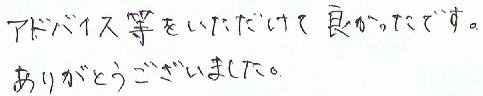 アドバイス等をいただけて良かったです。
ありがとうございました。